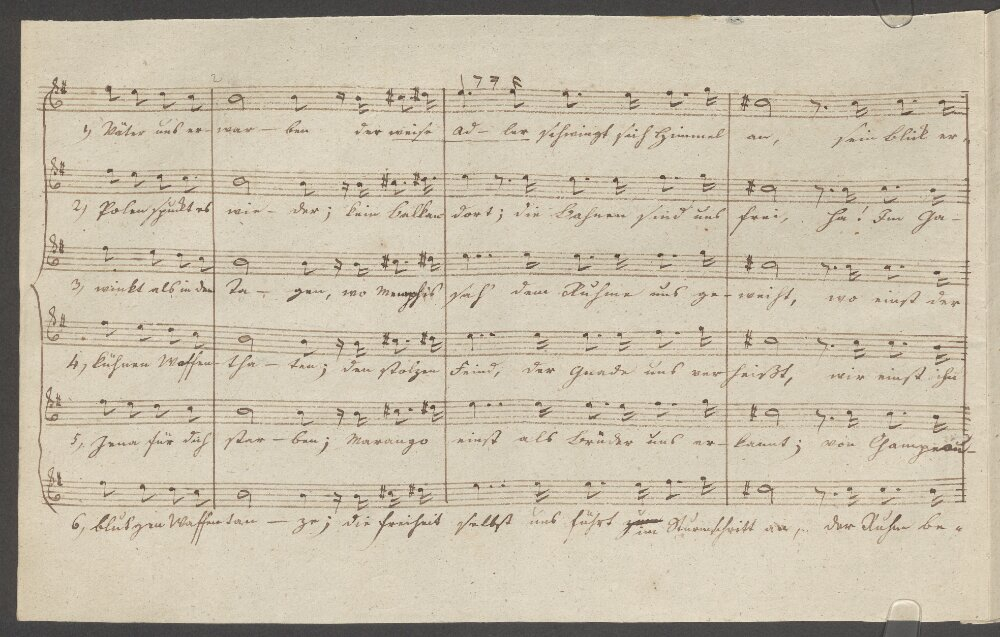 1) Väter uns er- war - ben der weiße Ad - ler schwingt sich Himmel an, sein Blick er-
2) Polen spukt es wie - der; kein Balken dort; die Bahnen sind uns frei, ha! Im Ga-
3) winkt als in den Ta - gen, wo Memphis sah' dem Ruhme uns ge- weiht, wo einst der
4) kühnen Waffen- tha - ten; den stolzen Feind, der Gnade uns ver heißt, wir einst ihn
5) Jena für dich star - ben; Marango einst als Brüder uns er- kannt; von
6) blut'gen Waffentan - ze; die Freiheit selbst uns führt im Sturmschritt an, der Ruhm be-